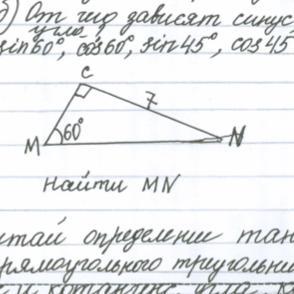 б) От чего зависят синус
угла?
sin60°, cos60°, sin45°, cos45
C
7
M 60° N
Найти MN
итай определение тан
прямоугольного треугольни